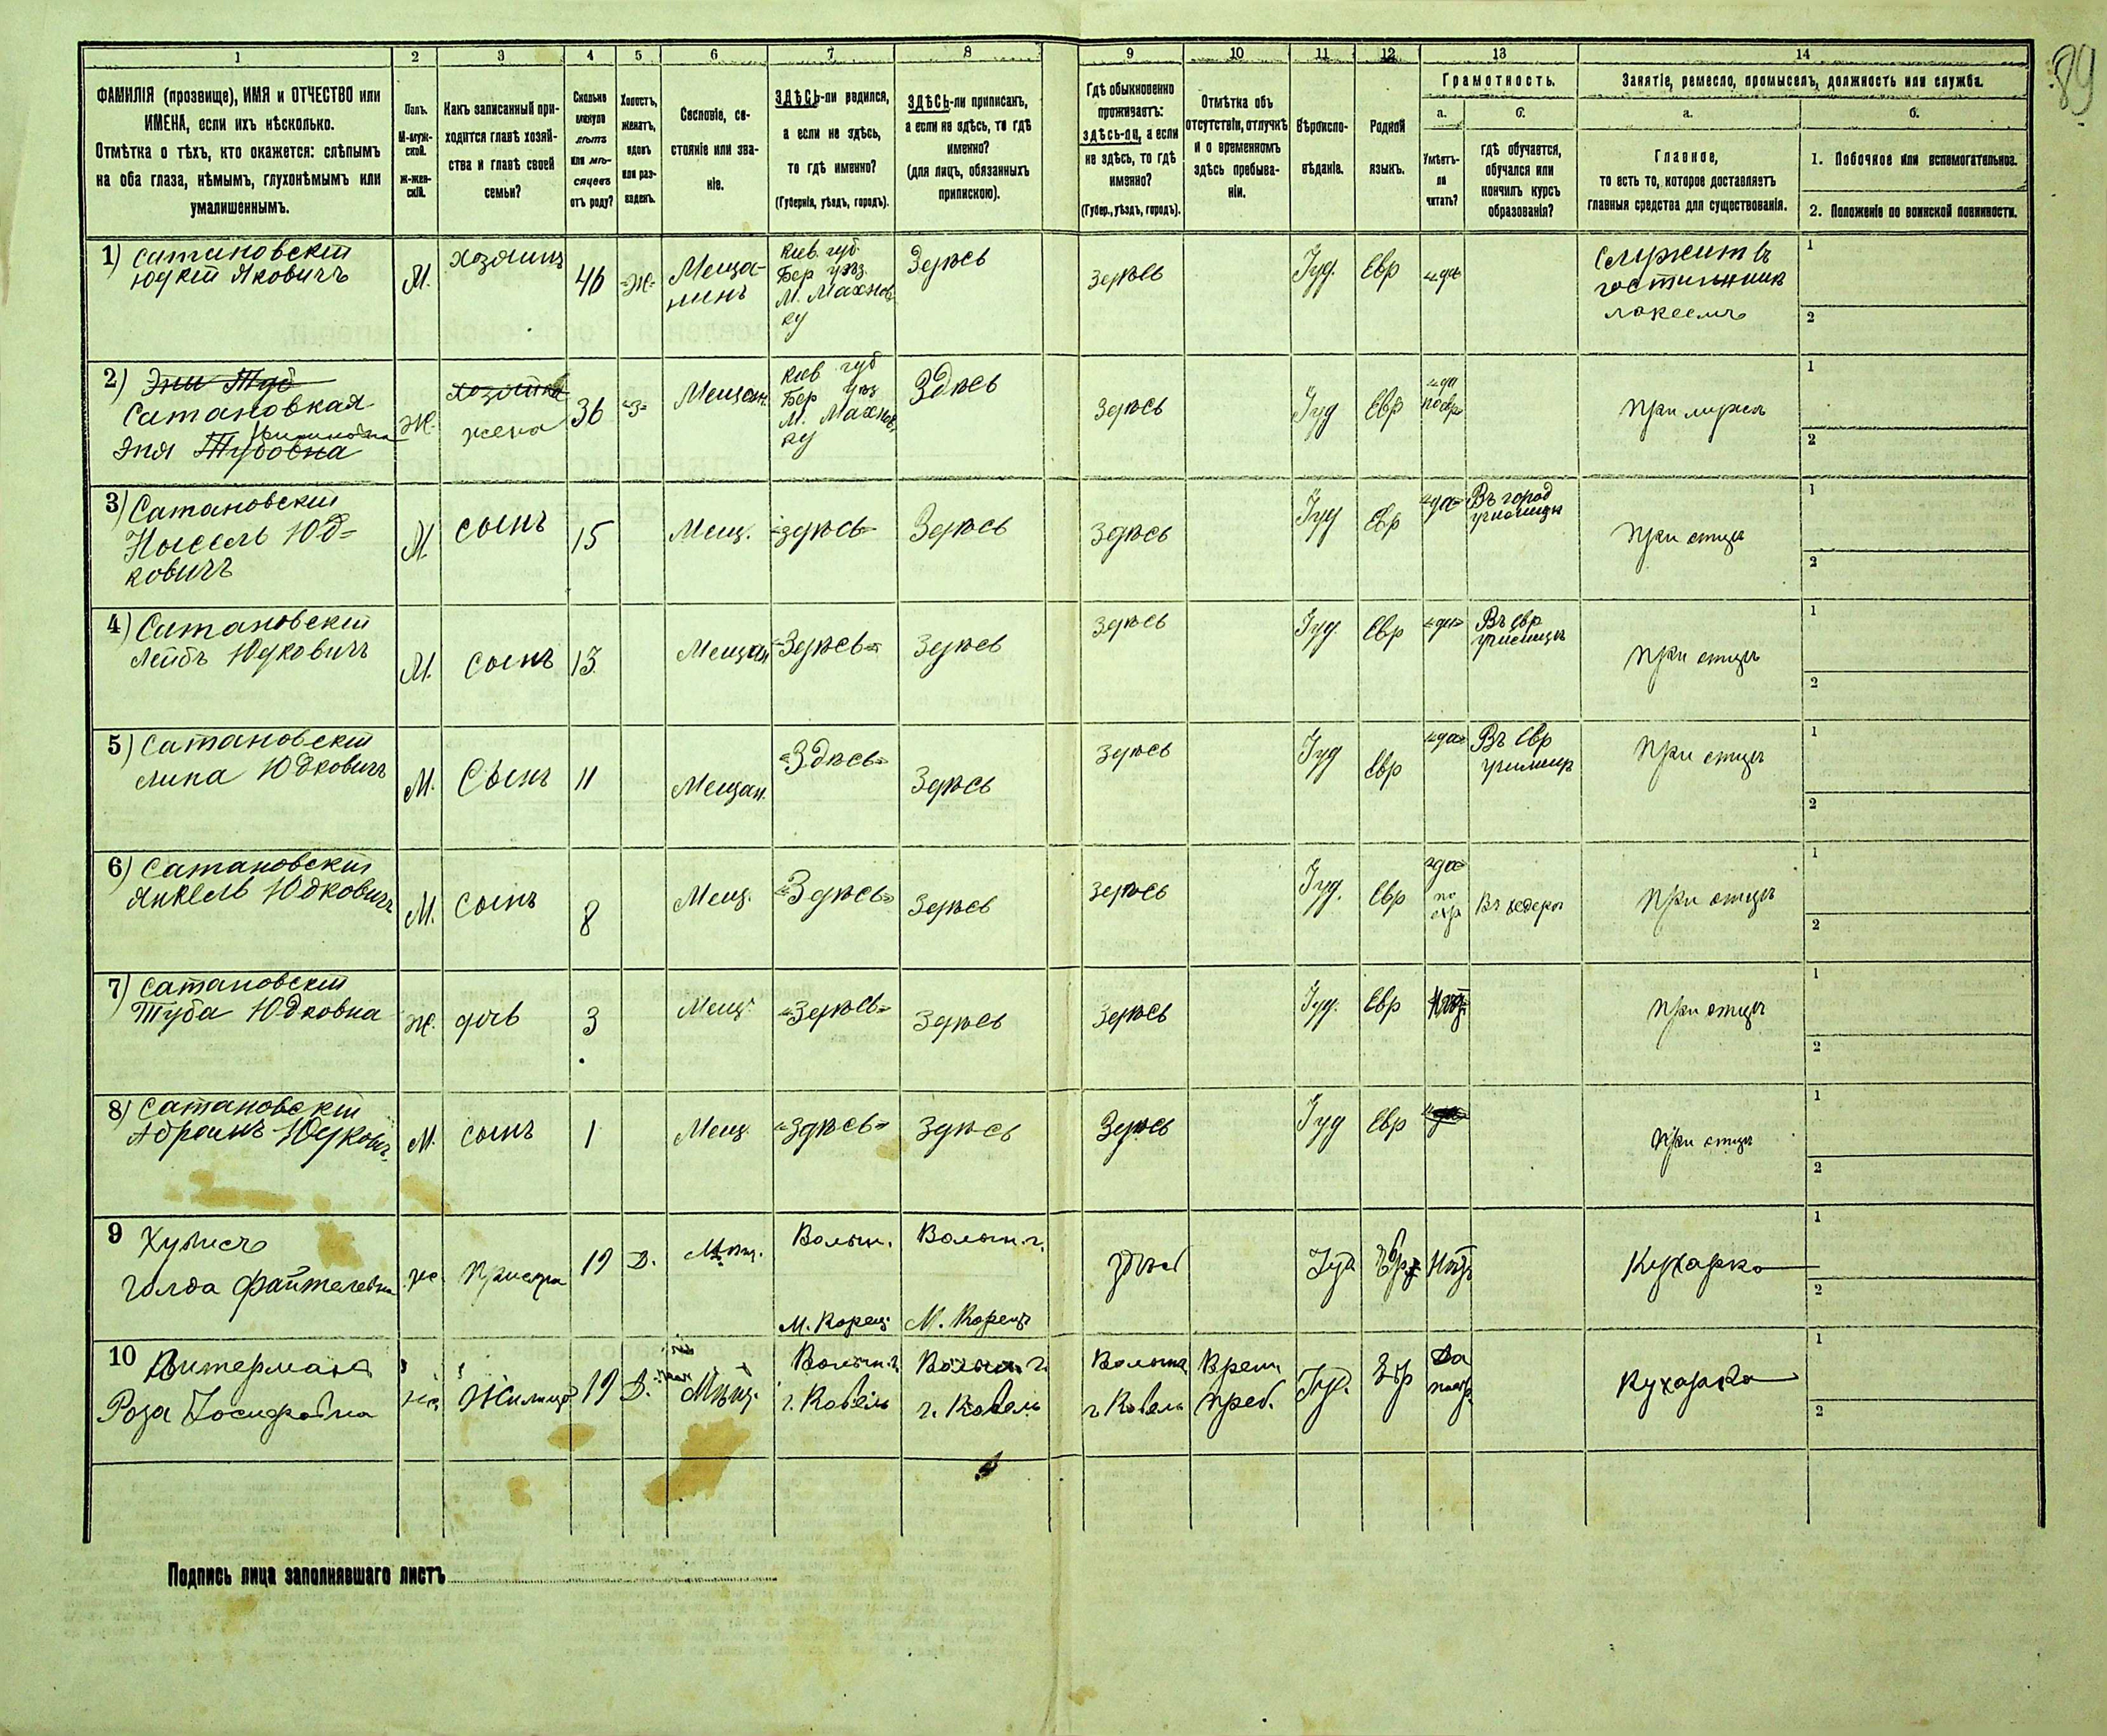 89
1 2 3 4 5 6 7 8 9 10 11 12 13 14
ФАМИЛІЯ (прозвище), ИМЯ и ОТЧЕСТВО или
ИМЕНА, если ихъ нѣсколько.
Отмѣтка о тѣхъ, кто окажется: слѣпымъ
на оба глаза, нѣмымъ, глухонѣмымъ или
умалишеннымъ.
Полъ.
М-муж-
ской.
ж-жен-
скій.
Какъ записанный при-
ходится главѣ хозяй-
ства и главѣ своей
семьи?
Сколько
минуло
лѣтъ
или мѣ-
сяцевъ
отъ роду?
Холостъ,
женатъ,
вдовъ
или раз-
веденъ.
Сословіе, со-
стояніе или зва-
ніе.
ЗДѢСЬ-ли родился,
а если не здѣсь,
то гдѣ именно?
(Губернія, уѣздъ, городъ).
ЗДѢСЬ-ли приписанъ,
а если не здѣсь, то гдѣ
именно?
(для лицъ, обязанныхъ
припискою).
Гдѣ обыкновенно
проживаетъ:
здѣсь-ли, а если
не здѣсь, то гдѣ
именно?
(Губер., уѣздъ, городъ).
Отмѣтка объ
отсутствіи, отлучкѣ
и о временномъ
здѣсь пребыва-
ніи.
Вѣроиспо-
вѣданіе.
Родной
языкъ.
Грамотность.
а.
Умѣетъ-
ли
читать?
б.
гдѣ обучается,
обучался или
кончилъ курсъ
образованія?
Занятіе, ремесло, промыселъ, должность или служба.
а.
Главное,
то есть то, которое доставляетъ
главныя средства для существованія.
б.
1. Побочное или вспомогательное.
2. Положеніе по воинской повинности.
1) Сатановскій
Юдкій Яковичъ
М.
хозяинъ
46
Ж
Меща-
нинъ
Кіев. губ.
Бер уѣз.
М. Махнов
ку
Здѣсь
Здѣсь
Іуд.
Евр
да
Служитъ въ
гостинник
лакеемъ
1
2
2) Эни Туб
Сатановкая
Эня Тубовна
Ж.
хозяйка
жена
36
З
Мещан.
Кіев губ
Бер уѣз
М. Махнов
ку
Здѣсь
Здѣсь
Іуд
Евр
да
по евр
При мужѣ
1
2
3) Сатановскій
Юд-
ковичъ
М.
сынъ
15
Мещ.
Здѣсь
Здѣсь
Здѣсь
Іуд
Евр
да
Въ город
училищѣ
При отцѣ
1
2
4) Сатановскій
Лейбъ Юдковичъ
М.
сынъ
13
Мещан
Здѣсь
Здѣсь
Здѣсь
Іуд.
Евр
да
Въ Евр
училищѣ
При отцѣ
1
2
5) Сатановскій
Липа Юдковичъ
М.
Сынъ
11
Мещан.
Здѣсь
Здѣсь
Здѣсь
Іуд
Евр
да
Въ Евр
училищѣ
При отцѣ
1
2
6) Сатановскій
Янкель Юдковичъ
М.
сынъ
8
Мещ.
Здѣсь
Здѣсь
Здѣсь
Іуд.
Евр
да
по
евр
Въ хедерѣ
При отцѣ
1
2
7) Сатановскій
Туба Юдковна
Ж.
дочь
3
Мещ.
Здѣсь
Здѣсь
Здѣсь
Іуд.
Евр
При отцѣ
1
2
8) Сатановскій
Абрамъ Юдкович
М.
сынъ
1
Мещ
Здѣсь
Здѣсь
Здѣсь
Іуд
Евр
При отцѣ
1
2
9
Голда Файтелевна
Ж
19
Д.
Мѣщ.
Волын.
М. Корец
Волын. г.
М. Корецъ
здѣсь
Іуд
Евр
Нѣтъ
Кухарка
1
2
10
Роза Іосифовна
19
Д.
Мѣщ.
Волын. г.
г. Ковель
Волын. г.
г. Ковель
Волын
г. Ковель
Врем.
преб.
Іуд.
Евр
Да
Кухарка
1
2
Подпись лица заполнявшаго листъ